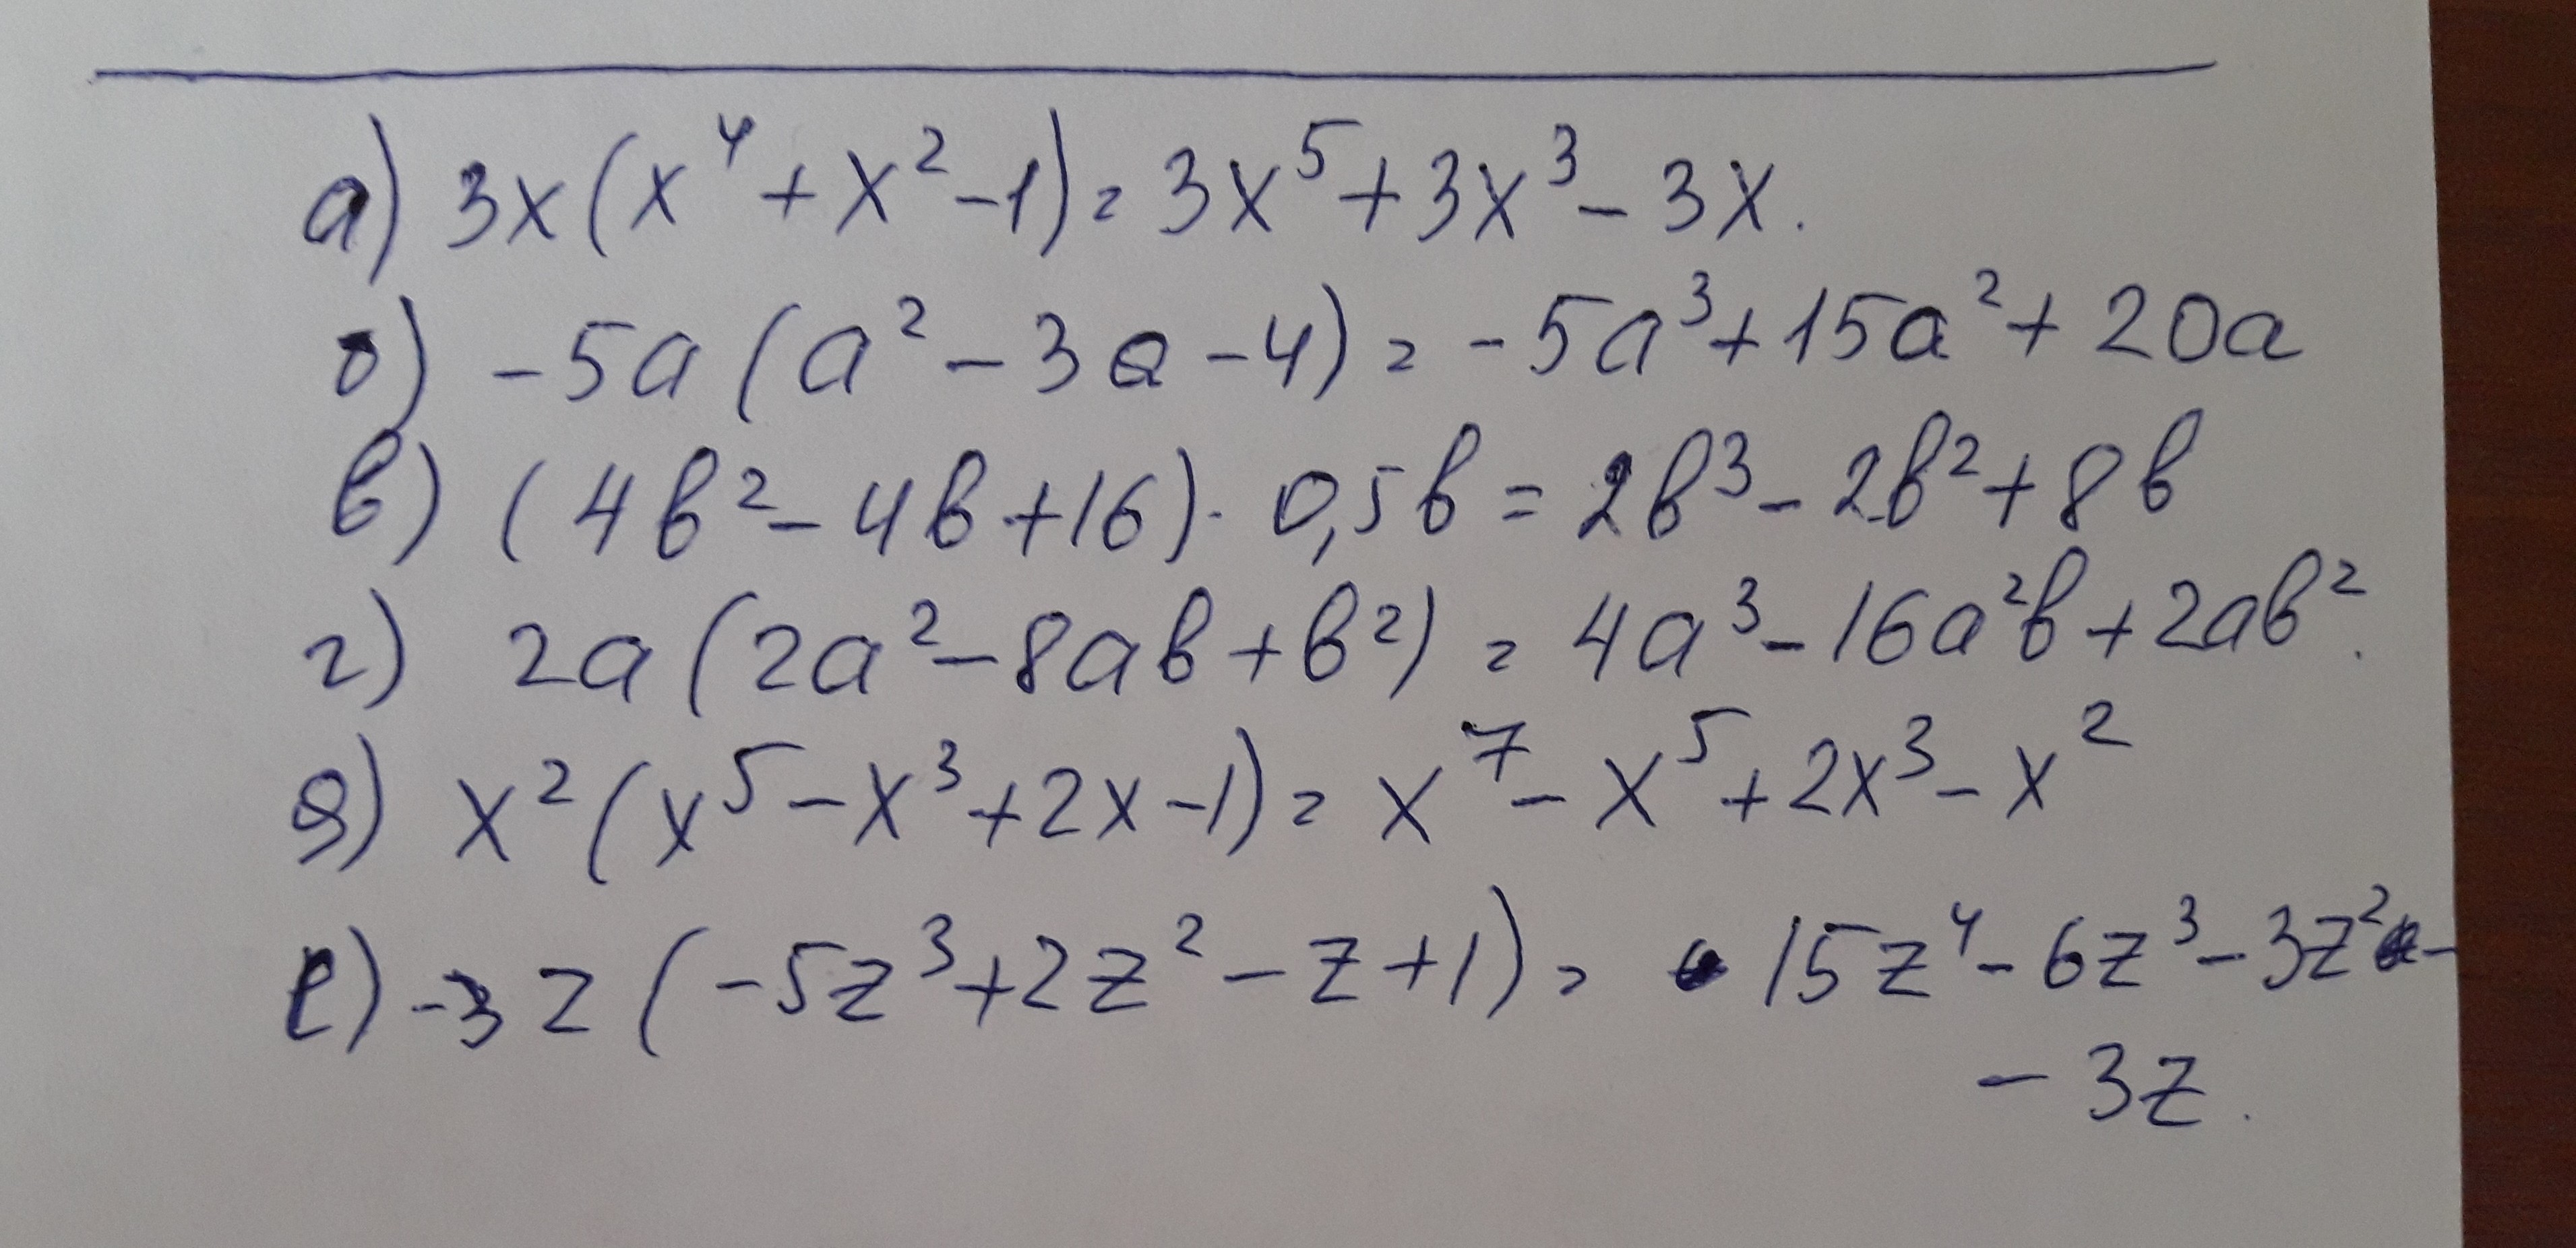 а) 3x(x⁴+x²-1)=3x⁵+3x³-3x.
б) -5a(a²-3a-4)=-5a³+15a²+20a
в) (4b²-4b+16)·0,5b=2b³-2b²+8b
г) 2a(2a²-8ab+b²)=4a³-16a²b+2ab².
д) x²(x⁵-x³+2x-1)=x⁷-x⁵+2x³-x²
е) -3z(-5z³+2z²-z+1)=15z⁴-6z³-3z²-
-3z.